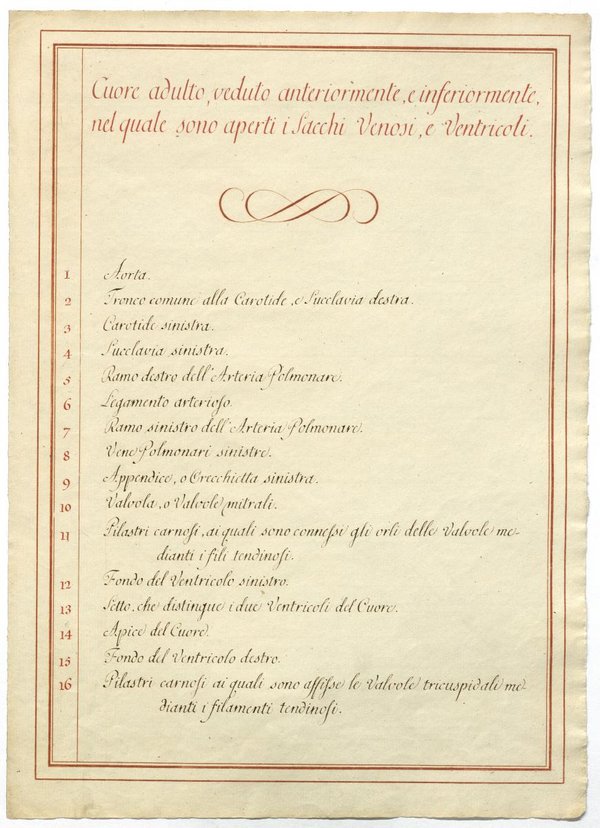 Cuore adulto, veduto anteriormente, e inferiormente,
nel quale sono aperti i Sacchi Venosi, e Ventricoli.
1 Aorta.
2 Tronco comune alla Carotide, e Succlavia destra.
3 Carotide sinistra.
4 Succlavia sinistra.
5 Ramo destro dell'Arteria Polmonare.
6 Legamento arterioso.
7 Ramo sinistro dell'Arteria Polmonare.
8 Vene Polmonari sinistre.
9 Appendice, o Orecchietta sinistra.
10 Valvola, o Valvole mitrali.
11 Pilastri carnosi, ai quali sono connessi gli orli delle Valvole me-
dianti i fili tendinosi.
12 Fondo del Ventricolo sinistro.
13 Setto, che distingue i due Ventricoli del Cuore.
14 Apice del Cuore.
15 Fondo del Ventricolo destro.
16 Pilastri carnosi ai quali sono affisse le Valvole tricuspidali me-
dianti i filamenti tendinosi.